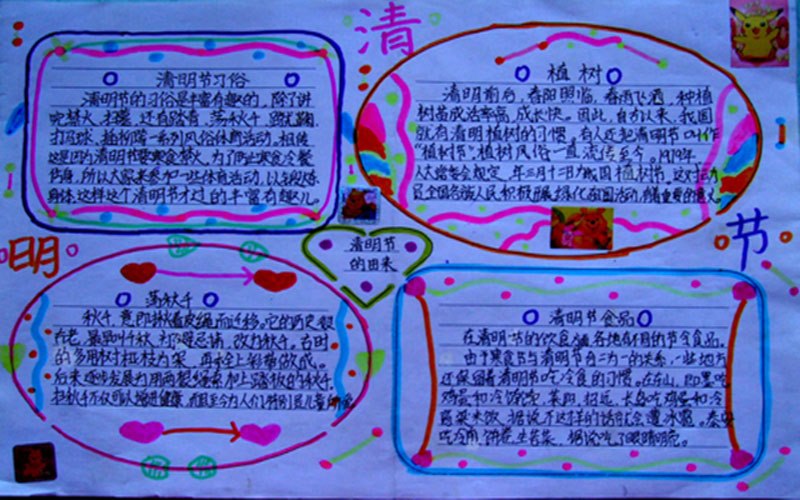 清
明
节
清明节习俗
清明节的习俗是丰富有趣的，除了讲
究禁火、扫墓，还有踏青、荡秋千、蹴鞠、
打马球、插柳等一系列风俗体育活动。相传
这是因为清明节要寒食禁火，为了防止寒食冷餐
伤身，所以大家来参加一些体育活动，以锻炼
身体。这样这个清明节才过的丰富有趣儿。
植树
清明前后，春阳照临，春雨飞洒，种植
树苗成活率高，成长快。因此，自古以来，我国
就有清明植树的习惯。有人还把清明节叫作
“植树节”。植树风俗一直流传至今。1979年，
人大常委会规定，每年三月十二日为我国植树节。这对动
员全国各族人民积极开展绿化祖国活动，有着重要的意义。
清明节
的由来
荡秋千
秋千，意即揪着皮绳而迁移。它的历史很
古老，最早叫千秋，后为避忌讳，改为秋千。古时
的多用树桠枝为架，再拴上彩带做成。
后来逐步发展为用两根绳索加上踏板的秋千。
打秋千不仅可以增进健康，而且至今为人们特别是儿童
清明节食品
在清明节的饮食，各地有不同的节令食品。
由于寒食节与清明节合二为一的关系，一些地方
还保留着清明节吃冷食的习惯。在东山，即墨吃
鸡蛋和冷饽饽，莱阳、招远、长岛吃鸡蛋和冷
高粱米饭，据说不这样的话就会遭冰雹。泰安
吃冷煎饼卷生苦菜，据说吃了眼睛明亮。